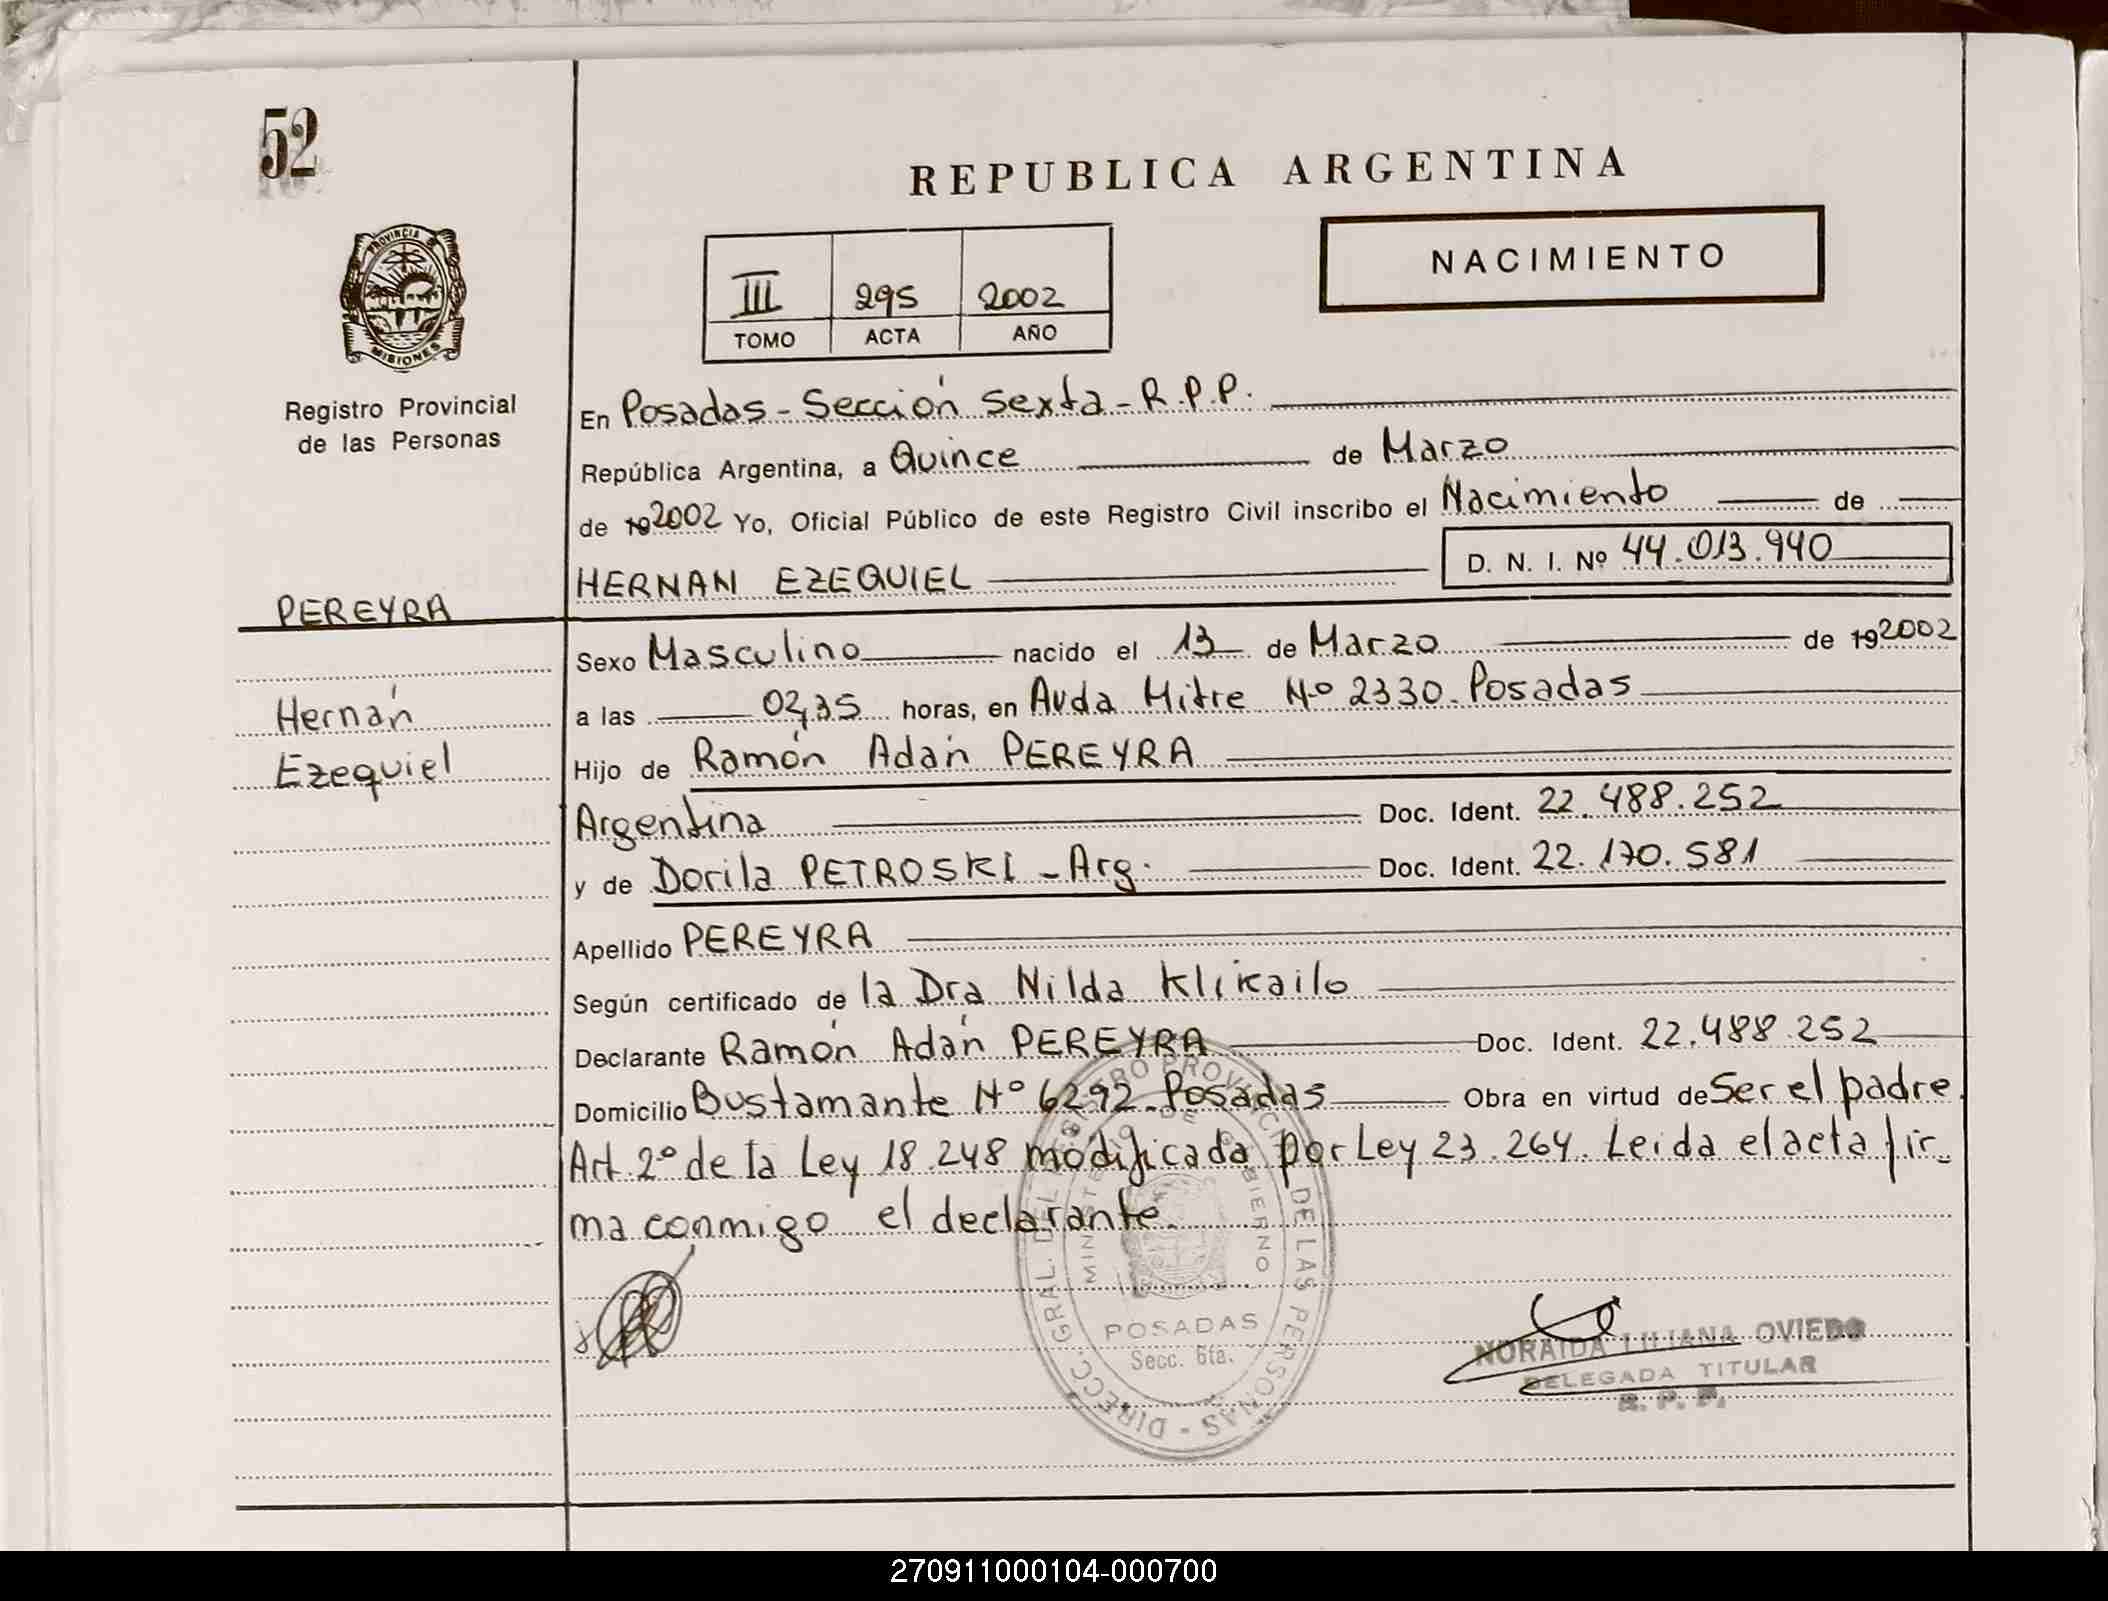 52
REPUBLICA ARGENTINA
NACIMIENTO
III 295 2002
TOMO ACTA AÑO
PROVINCIA DE
MISIONES
Registro Provincial
de las Personas
En Posadas - Sección Sexta - R.P.P.
República Argentina, a Quince de Marzo
de 192002 Yo, Oficial Público de este Registro Civil inscribo el Nacimiento de
D. N. I. Nº 44.013.940
HERNAN EZEQUIEL
PEREYRA
Sexo Masculino nacido el 13 de Marzo de 192002
Hernán
a las 02,35 horas, en Avda Mitre Nº 2330. Posadas
Ezequiel
Hijo de Ramón Adán PEREYRA
Argentina Doc. Ident. 22.488.252
y de Dorila PETROSKI - Arg. Doc. Ident. 22.170.581
Apellido PEREYRA
Según certificado de la Dra Nilda Klikailo
Declarante Ramón Adán PEREYRA Doc. Ident. 22.488.252
Domicilio Bustamante Nº 6292. Posadas Obra en virtud de Ser el padre.
Art. 2º de la Ley 18.248 modificada por Ley 23.264. Leida el acta fir-
ma conmigo el declarante.
DIRECC. GRAL. DEL REGISTRO PROVINCIAL DE LAS PERSONAS
MINISTERIO DE GOBIERNO
POSADAS
Secc. 6ta.
NORAIDA LILIANA OVIEDO
DELEGADA TITULAR
R. P. P.
270911000104-000700